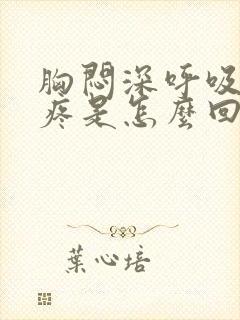 胸悶深呼吸
疼是怎麼回
葉心培